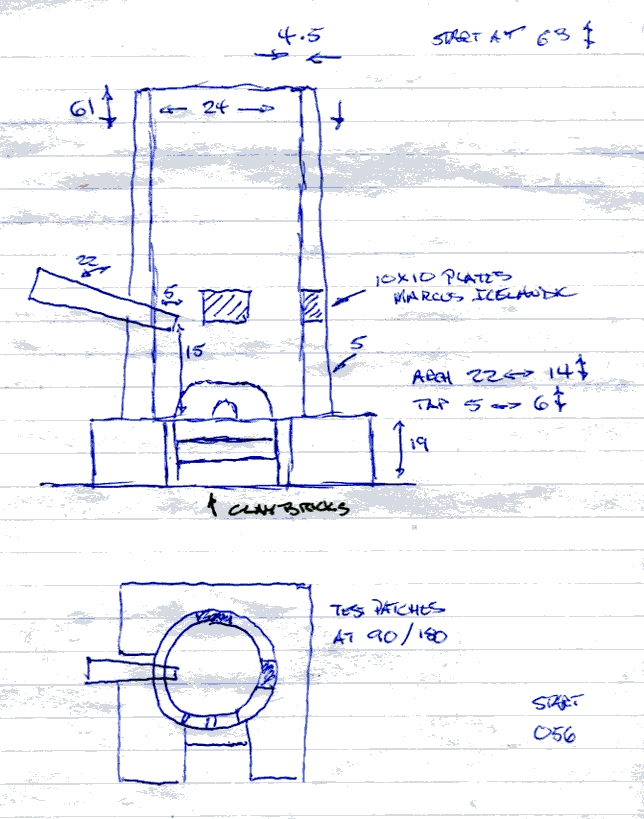 4.5
START AT 63
61
24
22
5
10X10 PLATES
MARCUS ICELANDIC
15
5
ARCH 22 ↔ 14 ↕
TAP 5 ↔ 6 ↕
19
↑ CLAY BRICKS
TEST PATCHES
AT 90/180
START
056